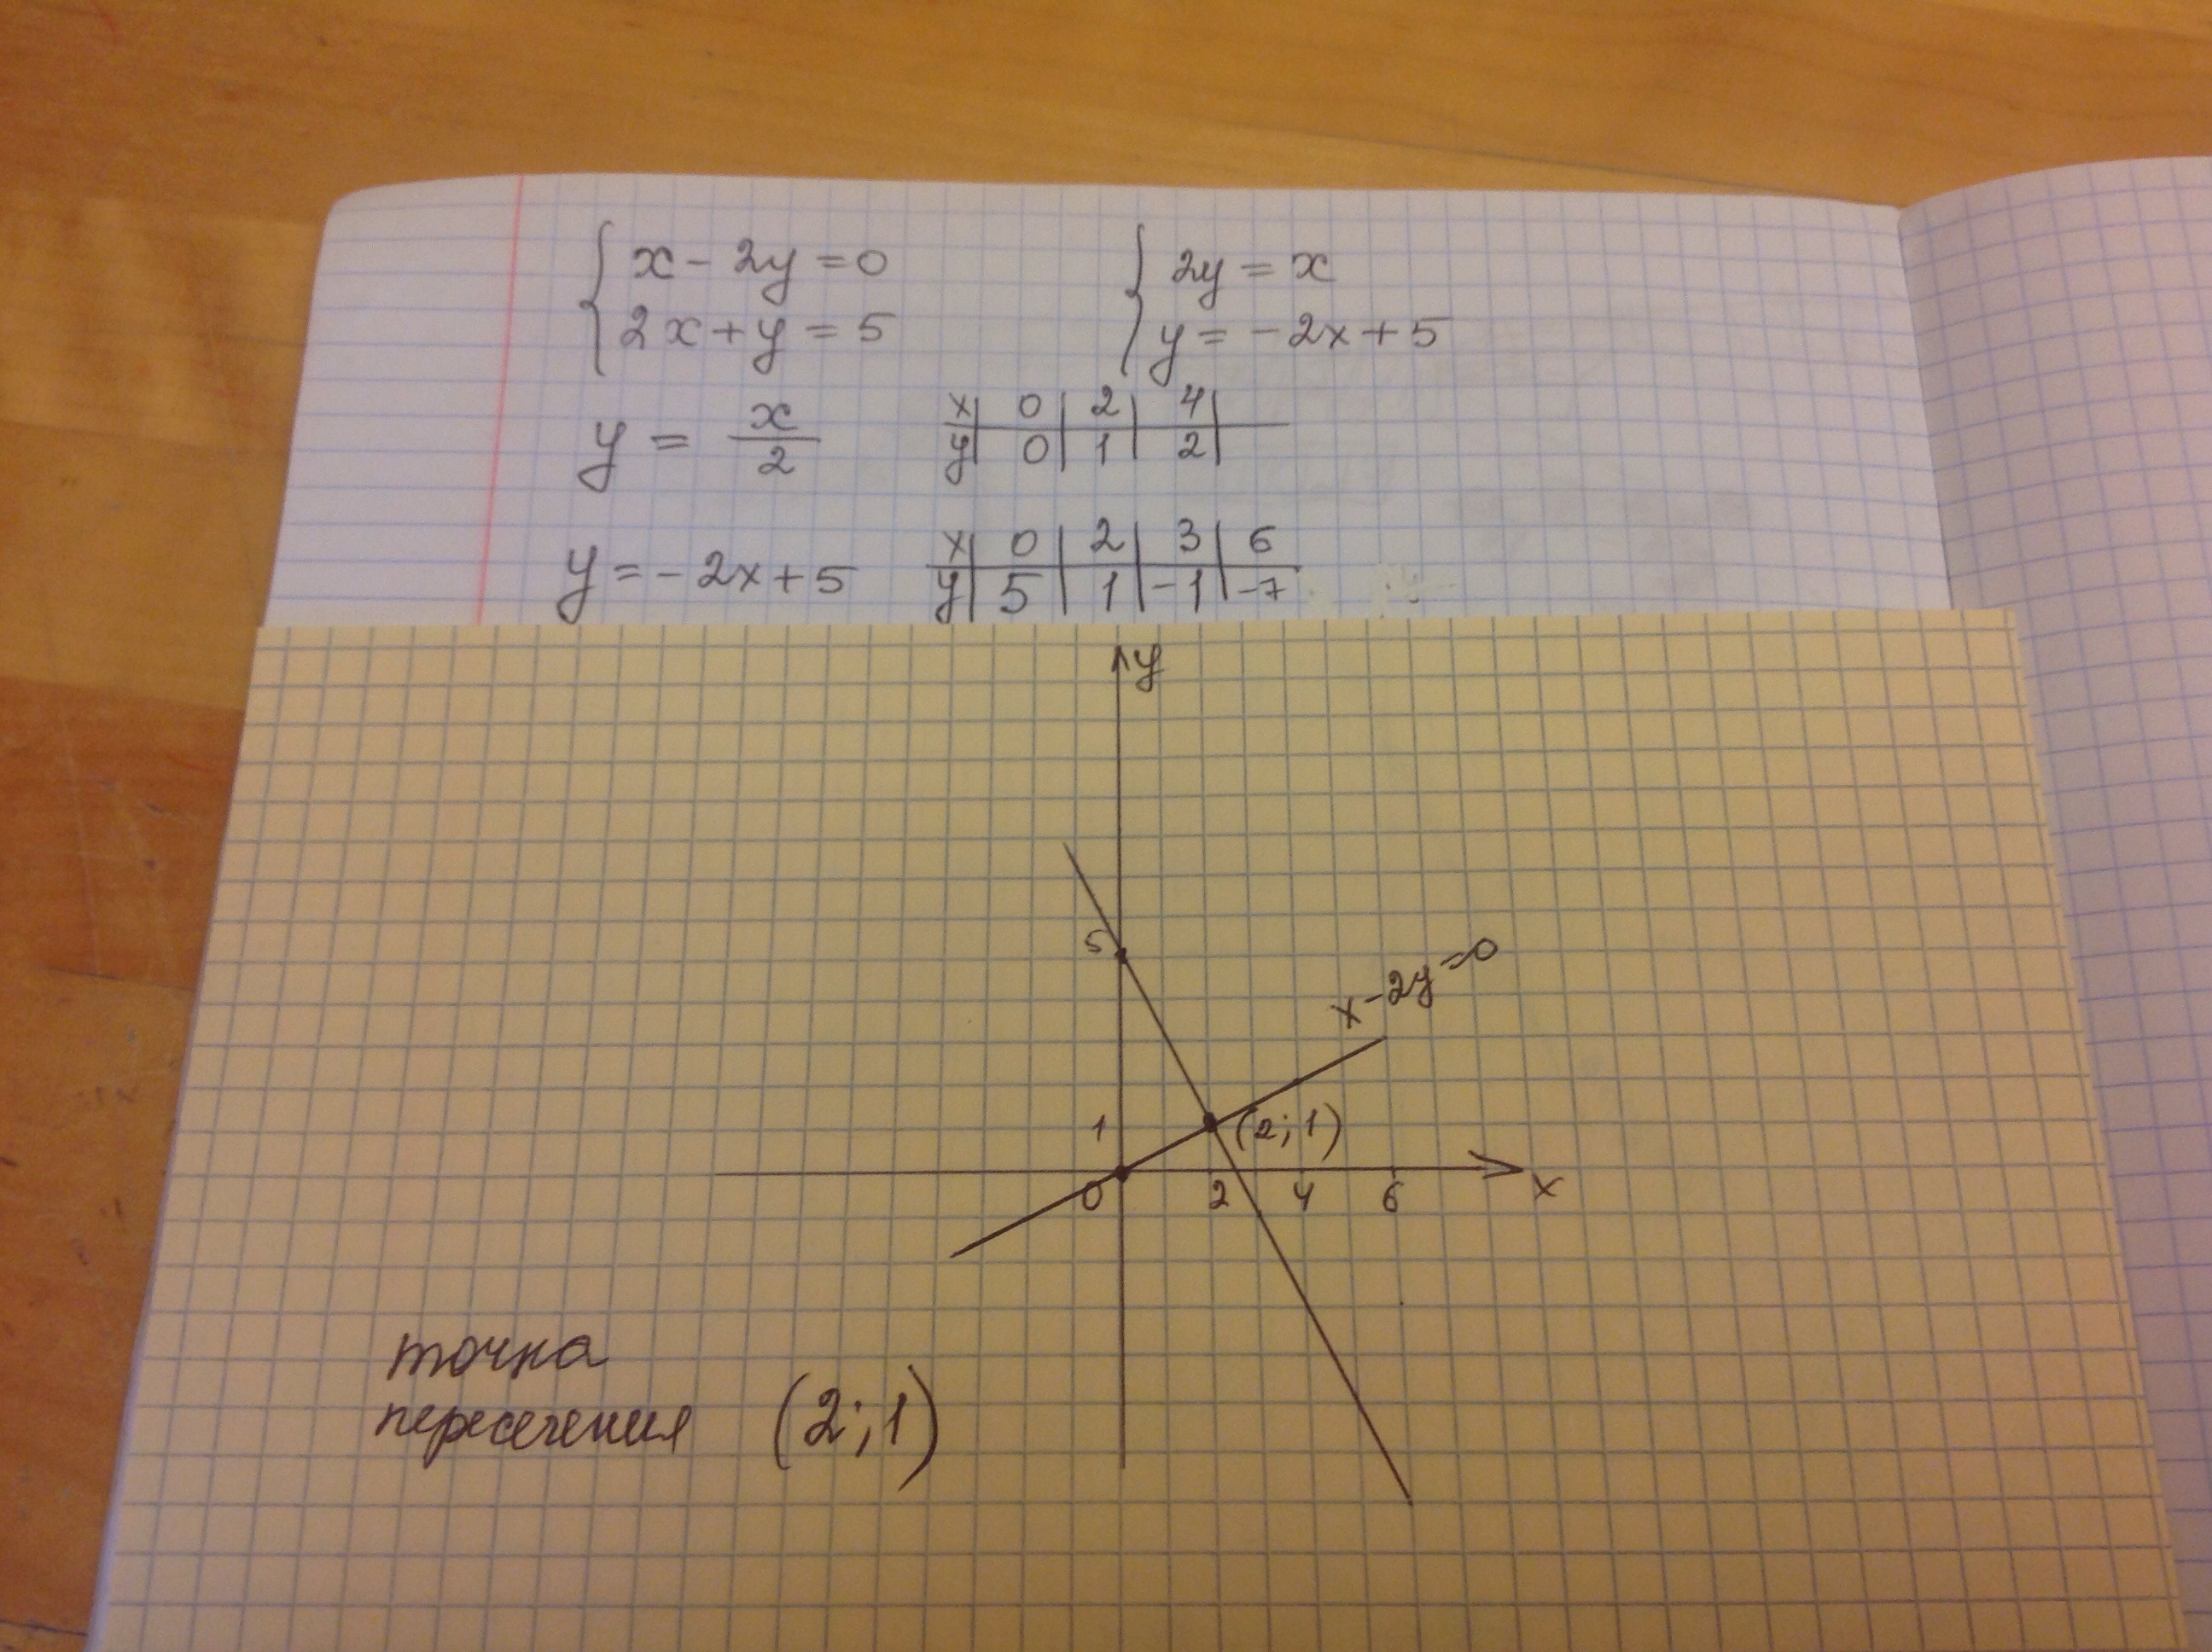 x - 2y = 0
2x + y = 5
2y = x
y = -2x + 5
y = x/2
x 0 2 4
y 0 1 2
y = -2x + 5
x 0 2 3 6
y 5 1 -1 -7
y
5
x - 2y = 0
1
(2; 1)
0 2 4 6 x
точка
пересечения (2; 1)